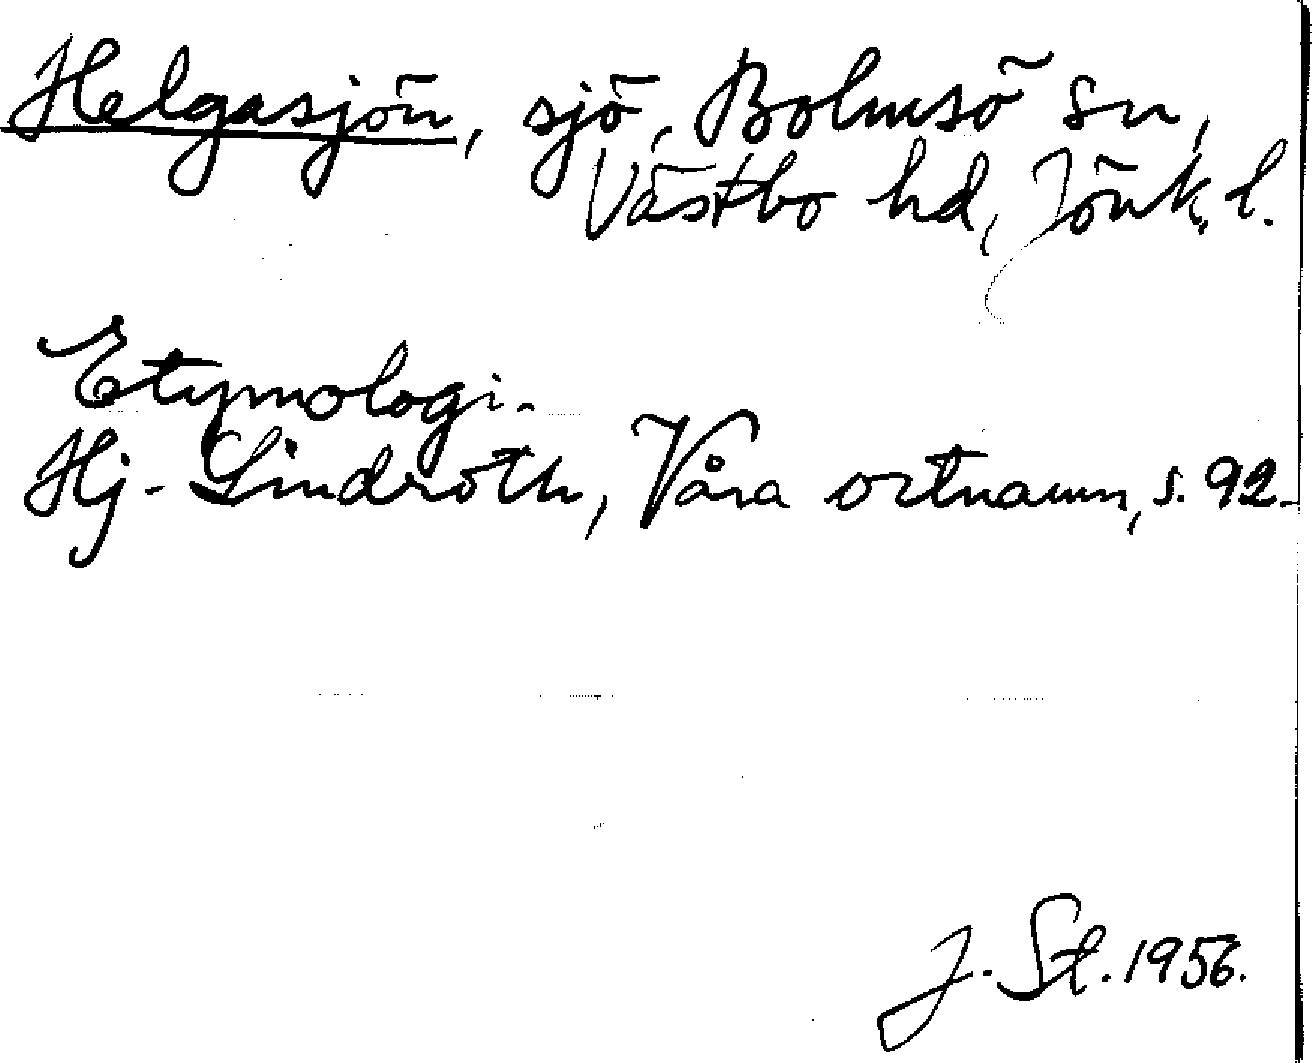 Helgasjön, sjö, Bolmsö sn,
Västbo hd, Jönk. l.
Etymologi.
Hj. Lindroth, Våra ortnamn, s. 92.
J. St. 1956.